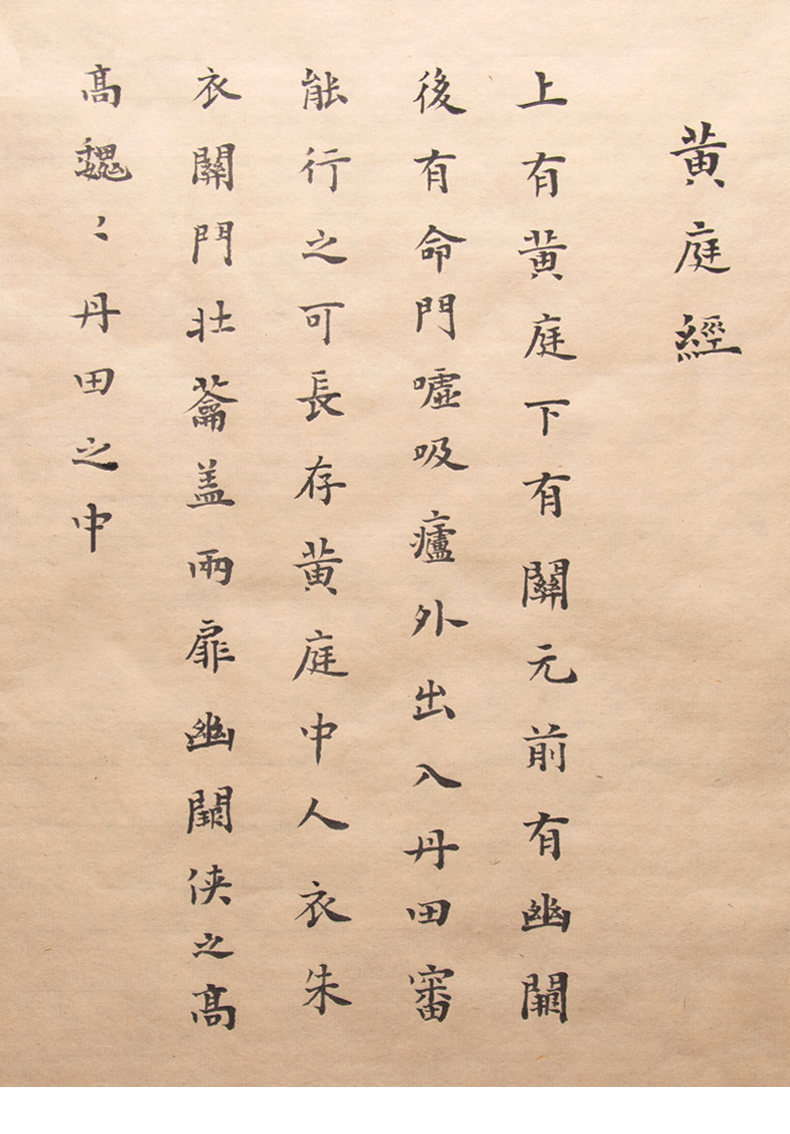 黄庭經
上有黄庭下有關元前有幽闕
後有命門噓吸廬外出入丹田審
能行之可長存黄庭中人衣朱
衣關門壯蘥盖兩扉幽闕侠之髙
髙巍〻丹田之中